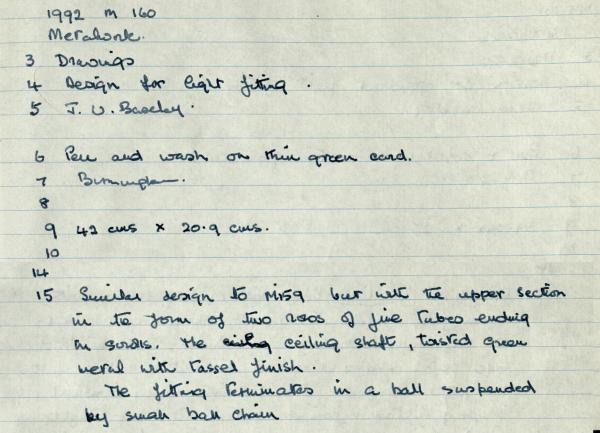 1992 M 160
Metalwork.
3 Drawings
4 Design for light fitting .
5 J. U. Baseley.
6 Pen and wash on thin green card.
7 Birmingham.
8
9 42 cms x 20.9 cms.
10
14
15 Similar design to M159 but with the upper section
in the form of two rows of fine tubes ending
in scrolls. The ceiling shaft, twisted green
metal with tassel finish.
The fitting terminates in a ball suspended
by small ball chain